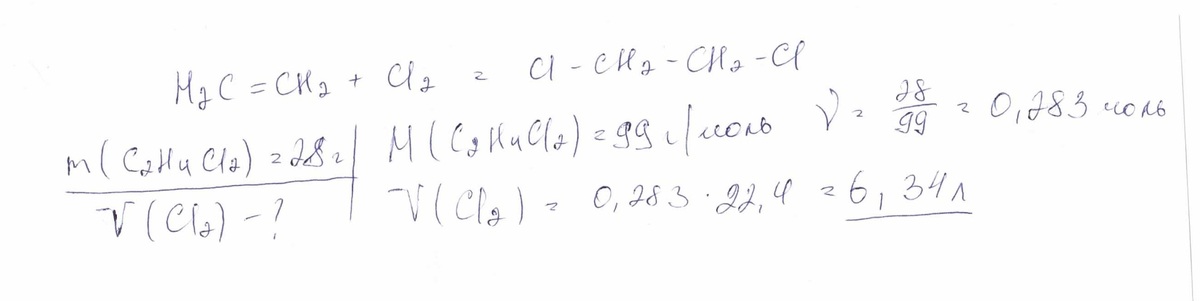 H₂C = CH₂ + Cl₂ = Cl - CH₂ - CH₂ - Cl
m(C₂H₄Cl₂) = 28 г | M(C₂H₄Cl₂) = 99 г/моль ν = 28/99 = 0,283 моль
V(Cl₂) - ? | V(Cl₂) = 0,283 · 22,4 = 6,34 л